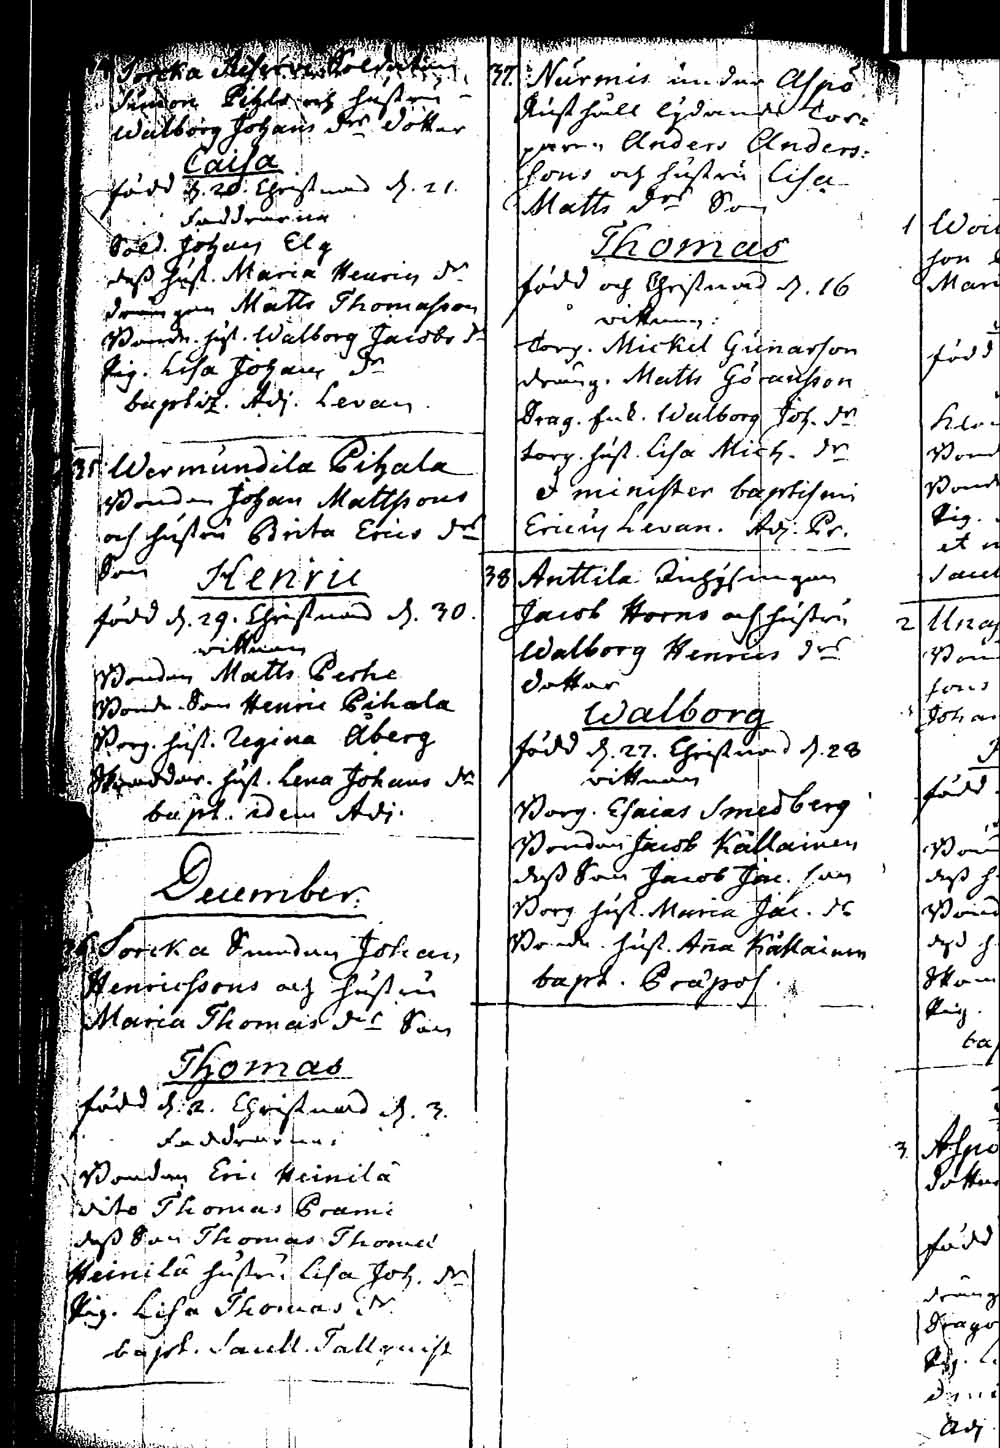 Sorcka Reserve Soldaten
Simon Pihls och hustru
Walborg Johans dr dotter
Caisa
född d. 20. Christnad d. 21.
Faddrarne
Sold. Johan Elg
dess hust. Maria Henrics dr
drängen Matts Thomasson
Bonde. hust. Walborg Jacobs dr
Pig. Lisa Johans dr
baptiz. Adj. Levan.
35 Wermundila Pihala
Bonden Johan Mattssons
och hustru Brita Erics drs
Son
Henric
född d. 29. Christnad d. 30.
vittnen
Bonden Matts Perhe
Bonde-Son Henric Pihala
Borg. hust. Regina Åberg
Skräddar. hust. Lena Johans dr
bapt. idem Adj.
December.
36 Sorcka Bonden Johan
Henricssons och hustru
Maria Thomas drs Son
Thomas
född d. 2. Christnad d. 3.
Faddrarne:
Bonden Eric Heinilä
dito Thomas Prami
dess Son Thomas Thomæ
Heinilä hustru Lisa Joh. dr
Pig. Lisa Thomas dr
bapt. Sacell. Tallquist
37. Nurmis under Aspö
Rusthåll lydande Tor-
paren Anders Anders-
sons och hustru Lisa
Matts drs Son
Thomas
född och Christnad d. 16
vittnen:
Torp. Mickel Gunarson
dräng. Matts Göransson
Drag. Enk. Walborg Joh. dr
torp. hust. Lisa Mich. dr
et minister baptismi
Ericus Levan. Adj. Pr.
38 Anttila Inhysingen
Jacob Horns och hustru
Walborg Henrics drs
dotter
Walborg
född d. 27. Christnad d. 28
vittnen
Borg. Esaias Smedberg
Bonden Jacob Källainen
dess Son Jacob Jac. son
Borg hust. Maria Jac. dr
Bonde. hust. Aña Källainen
bapt. Præpos.
1
son
Mari
född
Bond
Bonde
Pig.
et m
Sacell
2
Bon
sons
Johan
född
Bon
dess h
Bond
dess h
Pig.
ba
3 Aspö
dotter
född
dräng
Drago
Pig. L
Adj